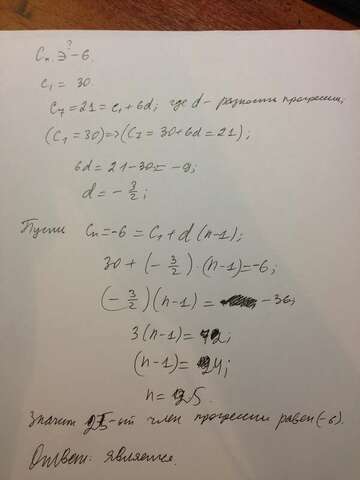 Cₙ ∋? -6
c₁ = 30.
C₇ = 21 = c₁ + 6d; где d - разность прогрессии;
(C₁ = 30) => (C₇ = 30 + 6d = 21);
6d = 21 - 30 = -9;
d = - 3/2;
Пусть Cₙ = -6 = C₁ + d (n-1);
30 + (- 3/2) · (n-1) = -6;
(- 3/2) (n-1) = -36;
3 (n-1) = 72;
(n-1) = 24;
n = 25.
Значит 25-ый член прогрессии равен (-6).
Ответ: является.